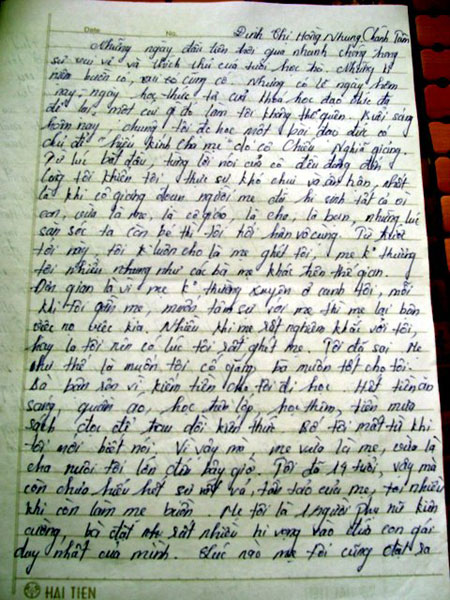 Date No. Đinh Thị Hồng Nhung, Chánh Tâm
Những ngày đầu tiên trôi qua nhanh chóng trong
sự vui vẻ và thích thú của tuổi học trò. Những kỉ
niệm buồn có, vui sơ cũng có. Nhưng có lẽ ngày hôm
nay, ngày học thực tế của khóa học đạo đức đã
để lại một cái gì đó làm tôi không thể quên. Buổi sáng
hôm nay, chúng tôi đc học một bài đạo đức có
chủ đề "Hiếu kính cha mẹ" do cô Chiêu Nghi giảng.
Từ lúc bắt đầu, từng lời nói của cô đều đúng đến
lòng tôi khiến tôi thực sự khó chịu và ân hận, nhất
là khi cô giảng đoạn người mẹ đã hi sinh tất cả vì
con, vừa là mẹ, là cô giáo, là cha, là bạn, những lúc
săn sóc ta còn bé thì tôi hối hận vô cùng. Từ trước
tới nay, tôi k luôn cho là mẹ ghét tôi, mẹ k° thương
tôi nhiều nhưng như các bà mẹ khác trên thế gian.
Đơn giản là vì mẹ k° thường xuyên ở cạnh tôi, mỗi
khi tôi gần mẹ, muốn tâm sự với mẹ thì mẹ lại bận
việc nọ việc kia. Nhiều khi mẹ rất nghiêm khắc với tôi,
hay la tôi nên có lúc tôi rất ghét mẹ. Tôi đã sai. Mẹ
như thế là muốn tôi cố gắng, bà muốn tốt cho tôi.
Bà bận rộn vì kiếm tiền cho tôi đi học. Hết tiền ăn
sáng, quần áo, học trên lớp, học thêm, tiền mua
sách đọc để trau dồi kiến thức. Bố tôi mất từ khi
tôi mới biết nói. Vì vậy mà, mẹ vừa là mẹ, vừa là
cha nuôi tôi lớn đến bây giờ. Tôi đã 14 tuổi, vậy mà
còn chưa hiểu hết sự vất vả, tần tảo của mẹ, tới nhiều
khi còn làm mẹ buồn. Mẹ tôi là 1 người phụ nữ kiên
cường, bà đặt rất nhiều hi vọng vào đứa con gái
duy nhất của mình. Lúc nào mẹ tôi cũng đặt ra
HẢI TIẾN